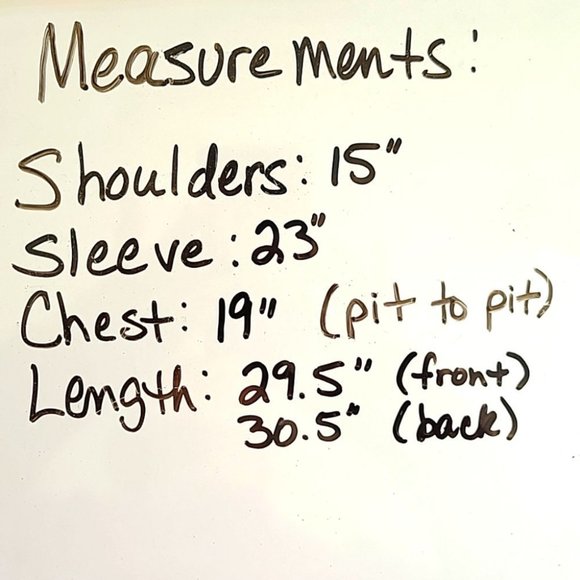 Measurements:
Shoulders: 15"
Sleeve: 23"
Chest: 19" (pit to pit)
Length: 29.5" (front)
30.5" (back)